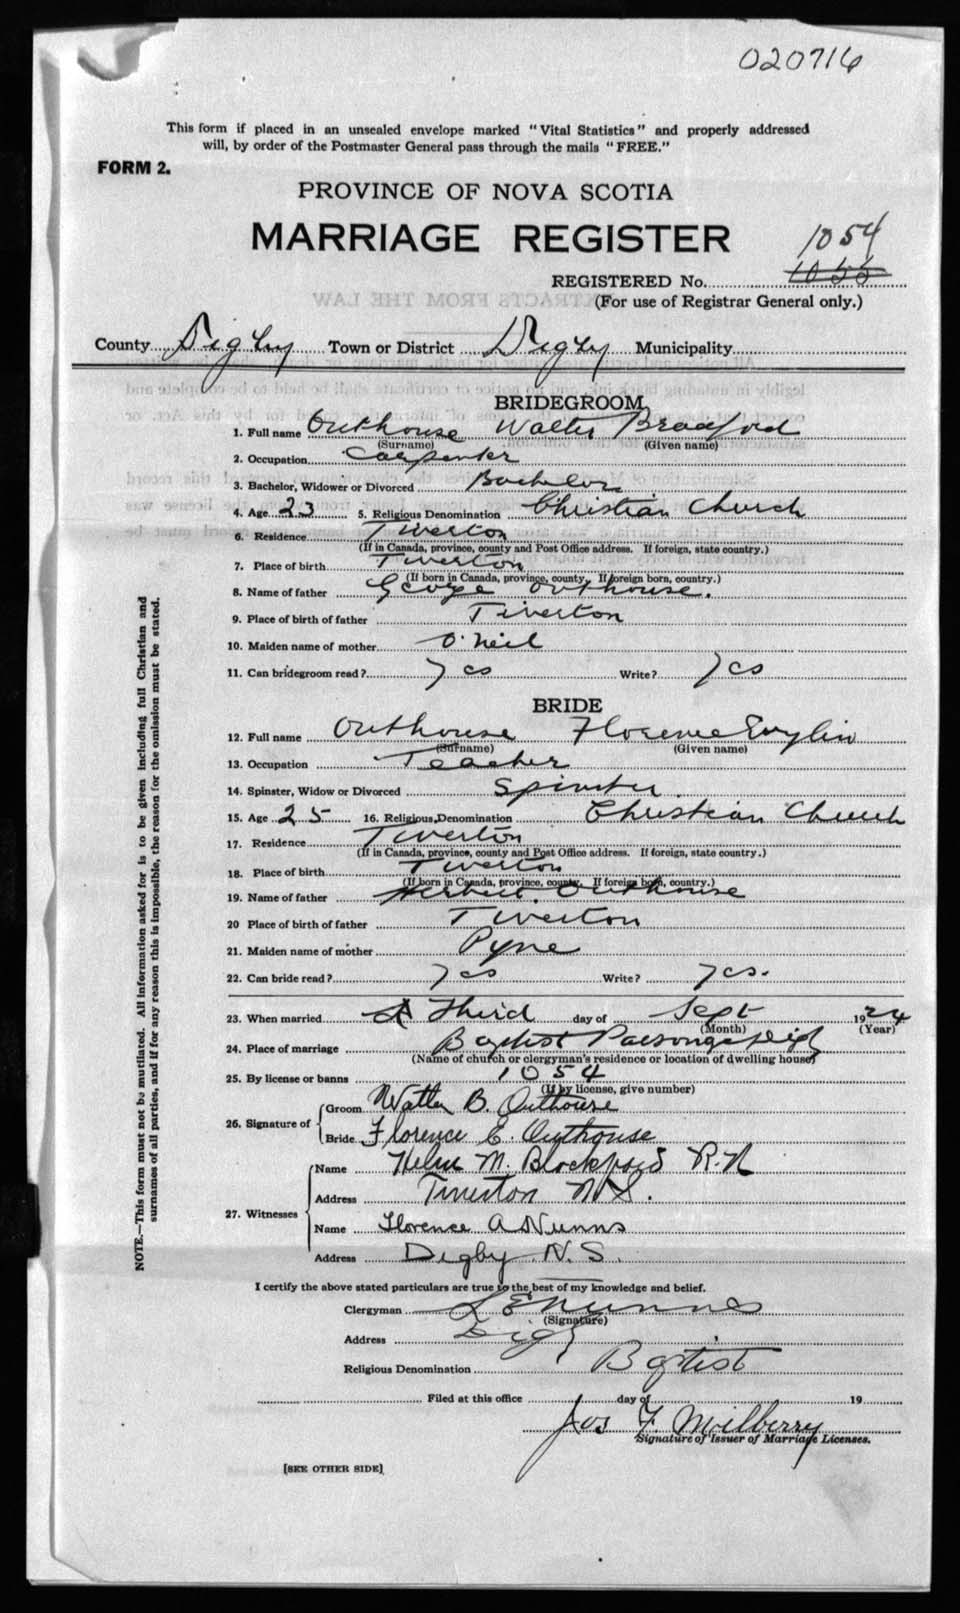 020716
This form if placed in an unsealed envelope marked "Vital Statistics" and properly addressed
will, by order of the Postmaster General pass through the mails "FREE."
FORM 2.
PROVINCE OF NOVA SCOTIA
MARRIAGE REGISTER
1054
REGISTERED No. 1055
(For use of Registrar General only.)
County Digby Town or District Digby Municipality
BRIDEGROOM
1. Full name Outhouse Walter Bradford
(Surname) (Given name)
2. Occupation Carpenter
3. Bachelor, Widower or Divorced Bachelor
4. Age 23 5. Religious Denomination Christian Church
6. Residence Tiverton
(If in Canada, province, county and Post Office address. If foreign, state country.)
7. Place of birth Tiverton
(If born in Canada, province, county. If foreign born, country.)
8. Name of father George Outhouse.
9. Place of birth of father Tiverton
10. Maiden name of mother O'Neil
11. Can bridegroom read? yes Write? yes
BRIDE
12. Full name Outhouse Florence Evylin
(Surname) (Given name)
13. Occupation Teacher
14. Spinster, Widow or Divorced Spinster
15. Age 25 16. Religious Denomination Christian Church
17. Residence Tiverton
(If in Canada, province, county and Post Office address. If foreign, state country.)
18. Place of birth Tiverton
(If born in Canada, province, county. If foreign born, country.)
19. Name of father Herbert Outhouse
20 Place of birth of father Tiverton
21. Maiden name of mother Pyne
22. Can bride read? yes Write? yes.
23. When married Third day of Sept 1924
(Month) (Year)
24. Place of marriage Baptist Parsonage Digby
(Name of church or clergyman's residence or location of dwelling house)
25. By license or banns 1054
(If by license, give number)
26. Signature of Groom Walter B. Outhouse
Bride Florence E. Outhouse
27. Witnesses Name M. Blackford R.N
Address Tiverton N.S.
Name Florence A Nunns
Address Digby N.S.
I certify the above stated particulars are true to the best of my knowledge and belief.
Clergyman Nunns
(Signature)
Address Digby
Religious Denomination Baptist
Filed at this office day of 19
Jos F. Milberry
Signature of Issuer of Marriage Licenses.
[SEE OTHER SIDE]
NOTE.—This form must not be mutilated. All information asked for is to be given including full Christian and
surnames of all parties, and if for any reason this is impossible, the reason for the omission must be stated.